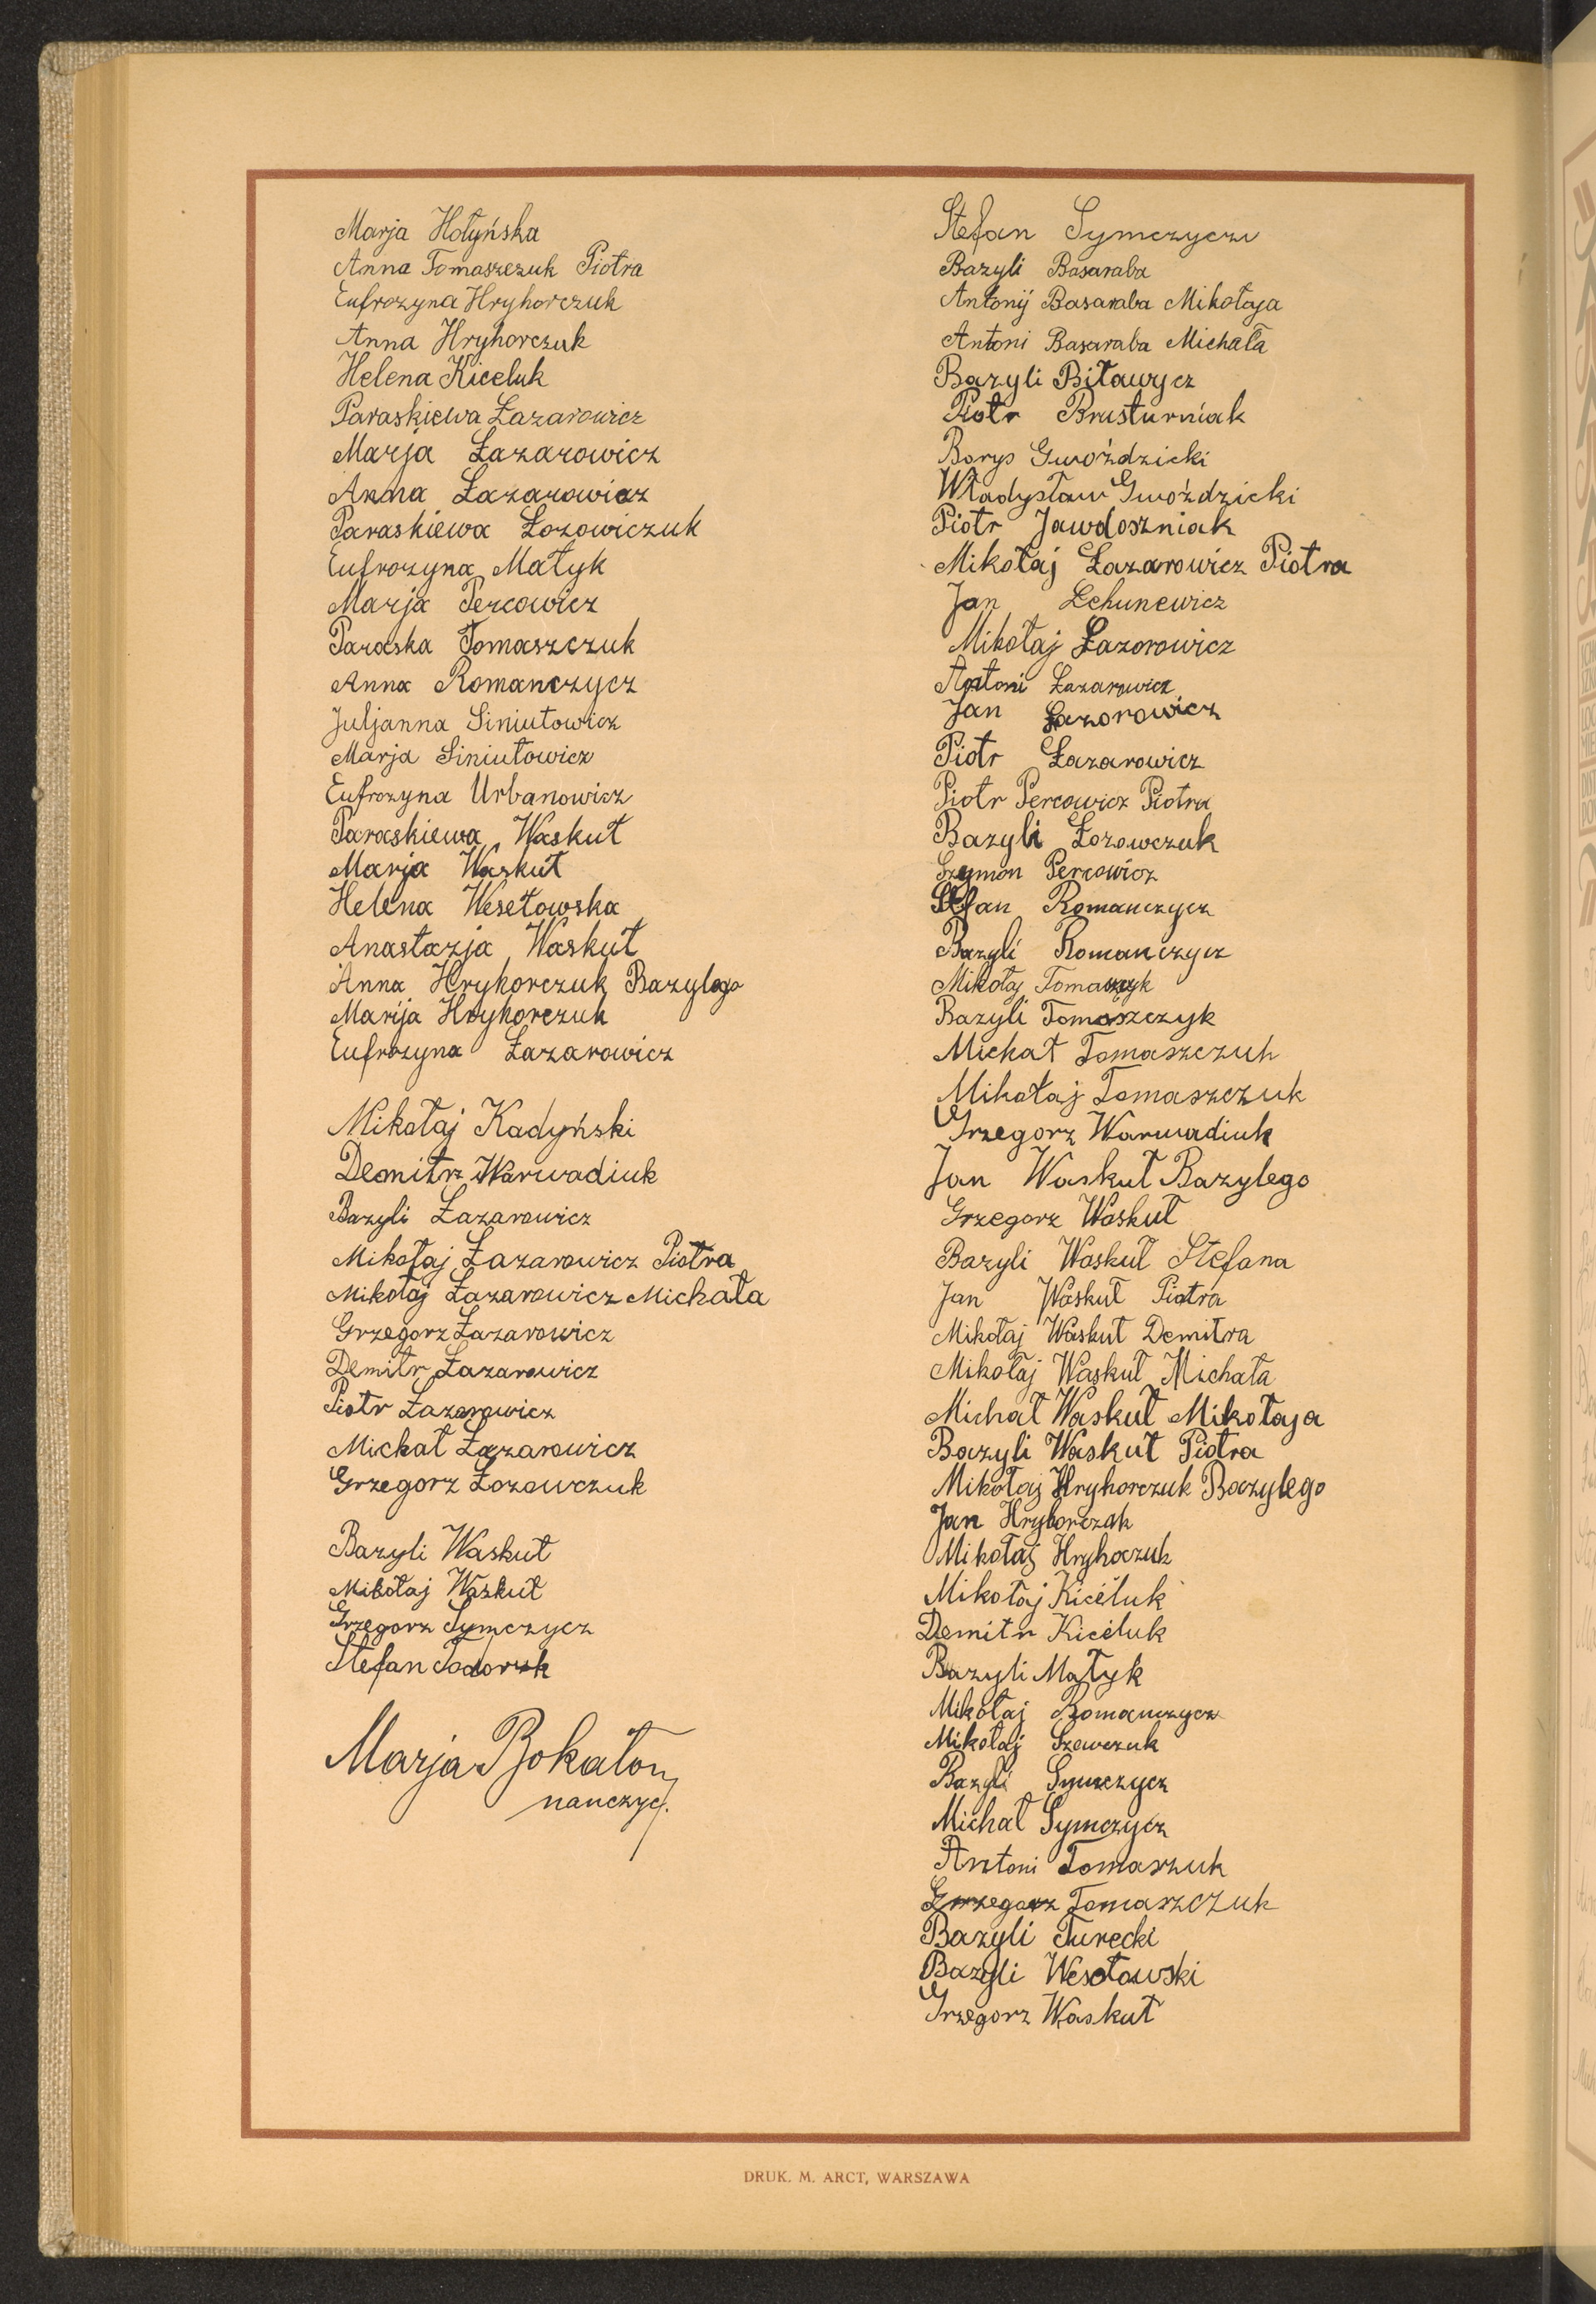 Marja Hołyńska
Anna Tomaszczuk Piotra
Eufrozyna Hryhorczuk
Anna Hryhorczuk
Helena Kiceluk
Paraskiewa Łazarowicz
Marja Łazarowicz
Anna Łazarowicz
Paraskiewa Łozowiczuk
Eufrozyna Matyk
Marja Percowicz
Paraska Tomaszczuk
Anna Romanczycz
Juljanna Siniutowicz
Marja Siniutowicz
Eufrozyna Urbanowicz
Paraskiewa Waskuł
Marja Waskuł
Helena Wesełowska
Anastazja Waskuł
Anna Hryhorczuk Bazylego
Marija Hryhorczuk
Eufrozyna Łazarowicz
Mikołaj Kadyński
Demitr Warwadiuk
Bazyli Łazarowicz
Mikołaj Łazarowicz Piotra
Mikołaj Łazarowicz Michała
Grzegorz Łazarowicz
Demitr Łazarowicz
Piotr Łazarowicz
Michał Łazarowicz
Grzegorz Łozowczuk
Bazyli Waskuł
Mikołaj Waskuł
Grzegorz Symczycz
Stefan Todoruk
Marja Bokałon
nauczyc.
Stefan Symczycz
Bazyli Basaraba
Antonij Basaraba Mikołaja
Antoni Basaraba Michała
Bazyli Biławycz
Piotr Brusturniak
Borys Gwoździcki
Władysław Gwoździcki
Piotr Jawdoszniak
Mikołaj Łazarowicz Piotra
Jan Lehunewicz
Mikołaj Łazorowicz
Antoni Łazarowicz
Jan Łazorowicz
Piotr Łazarowicz
Piotr Percowicz Piotra
Bazyli Łozowczuk
Szymon Percowicz
Stefan Romanczycz
Bazyli Romanczycz
Mikołaj
Bazyli Tomaszczyk
Michał Tomaszczuk
Mikołaj Tomaszczuk
Grzegorz Warwadiuk
Jan Waskuł Bazylego
Grzegorz Waskuł
Bazyli Waskuł Stefana
Jan Waskuł Piotra
Mikołaj Waskuł Demitra
Mikołaj Waskuł Michała
Michał Waskuł Mikołaja
Bazyli Waskuł Piotra
Mikołaj Hryhorczuk Bazylego
Jan Hryhorczak
Mikołaj Hryhoczuk
Mikołaj Kiceluk
Demitr Kiceluk
Bazyli Matyk
Mikołaj Romanczycz
Mikołaj Szewczuk
Bazyli Symczycz
Michał Symczycz
Antoni Tomaszuk
Grzegorz Tomaszczuk
Bazyli Turecki
Bazyli Wesołowski
Grzegorz Waskuł
DRUK. M. ARCT, WARSZAWA